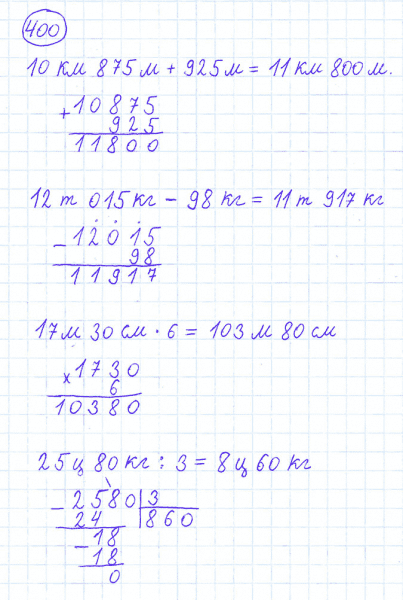 400
10 км 875 м + 925 м = 11 км 800 м.
+ 10875
925
11800
12 т 015 кг - 98 кг = 11 т 917 кг
- 12015
98
11917
17 м 30 см · 6 = 103 м 80 см
x 1730
6
10380
25 ц 80 кг : 3 = 8 ц 60 кг
- 2580 | 3
24 | 860
- 18
18
0